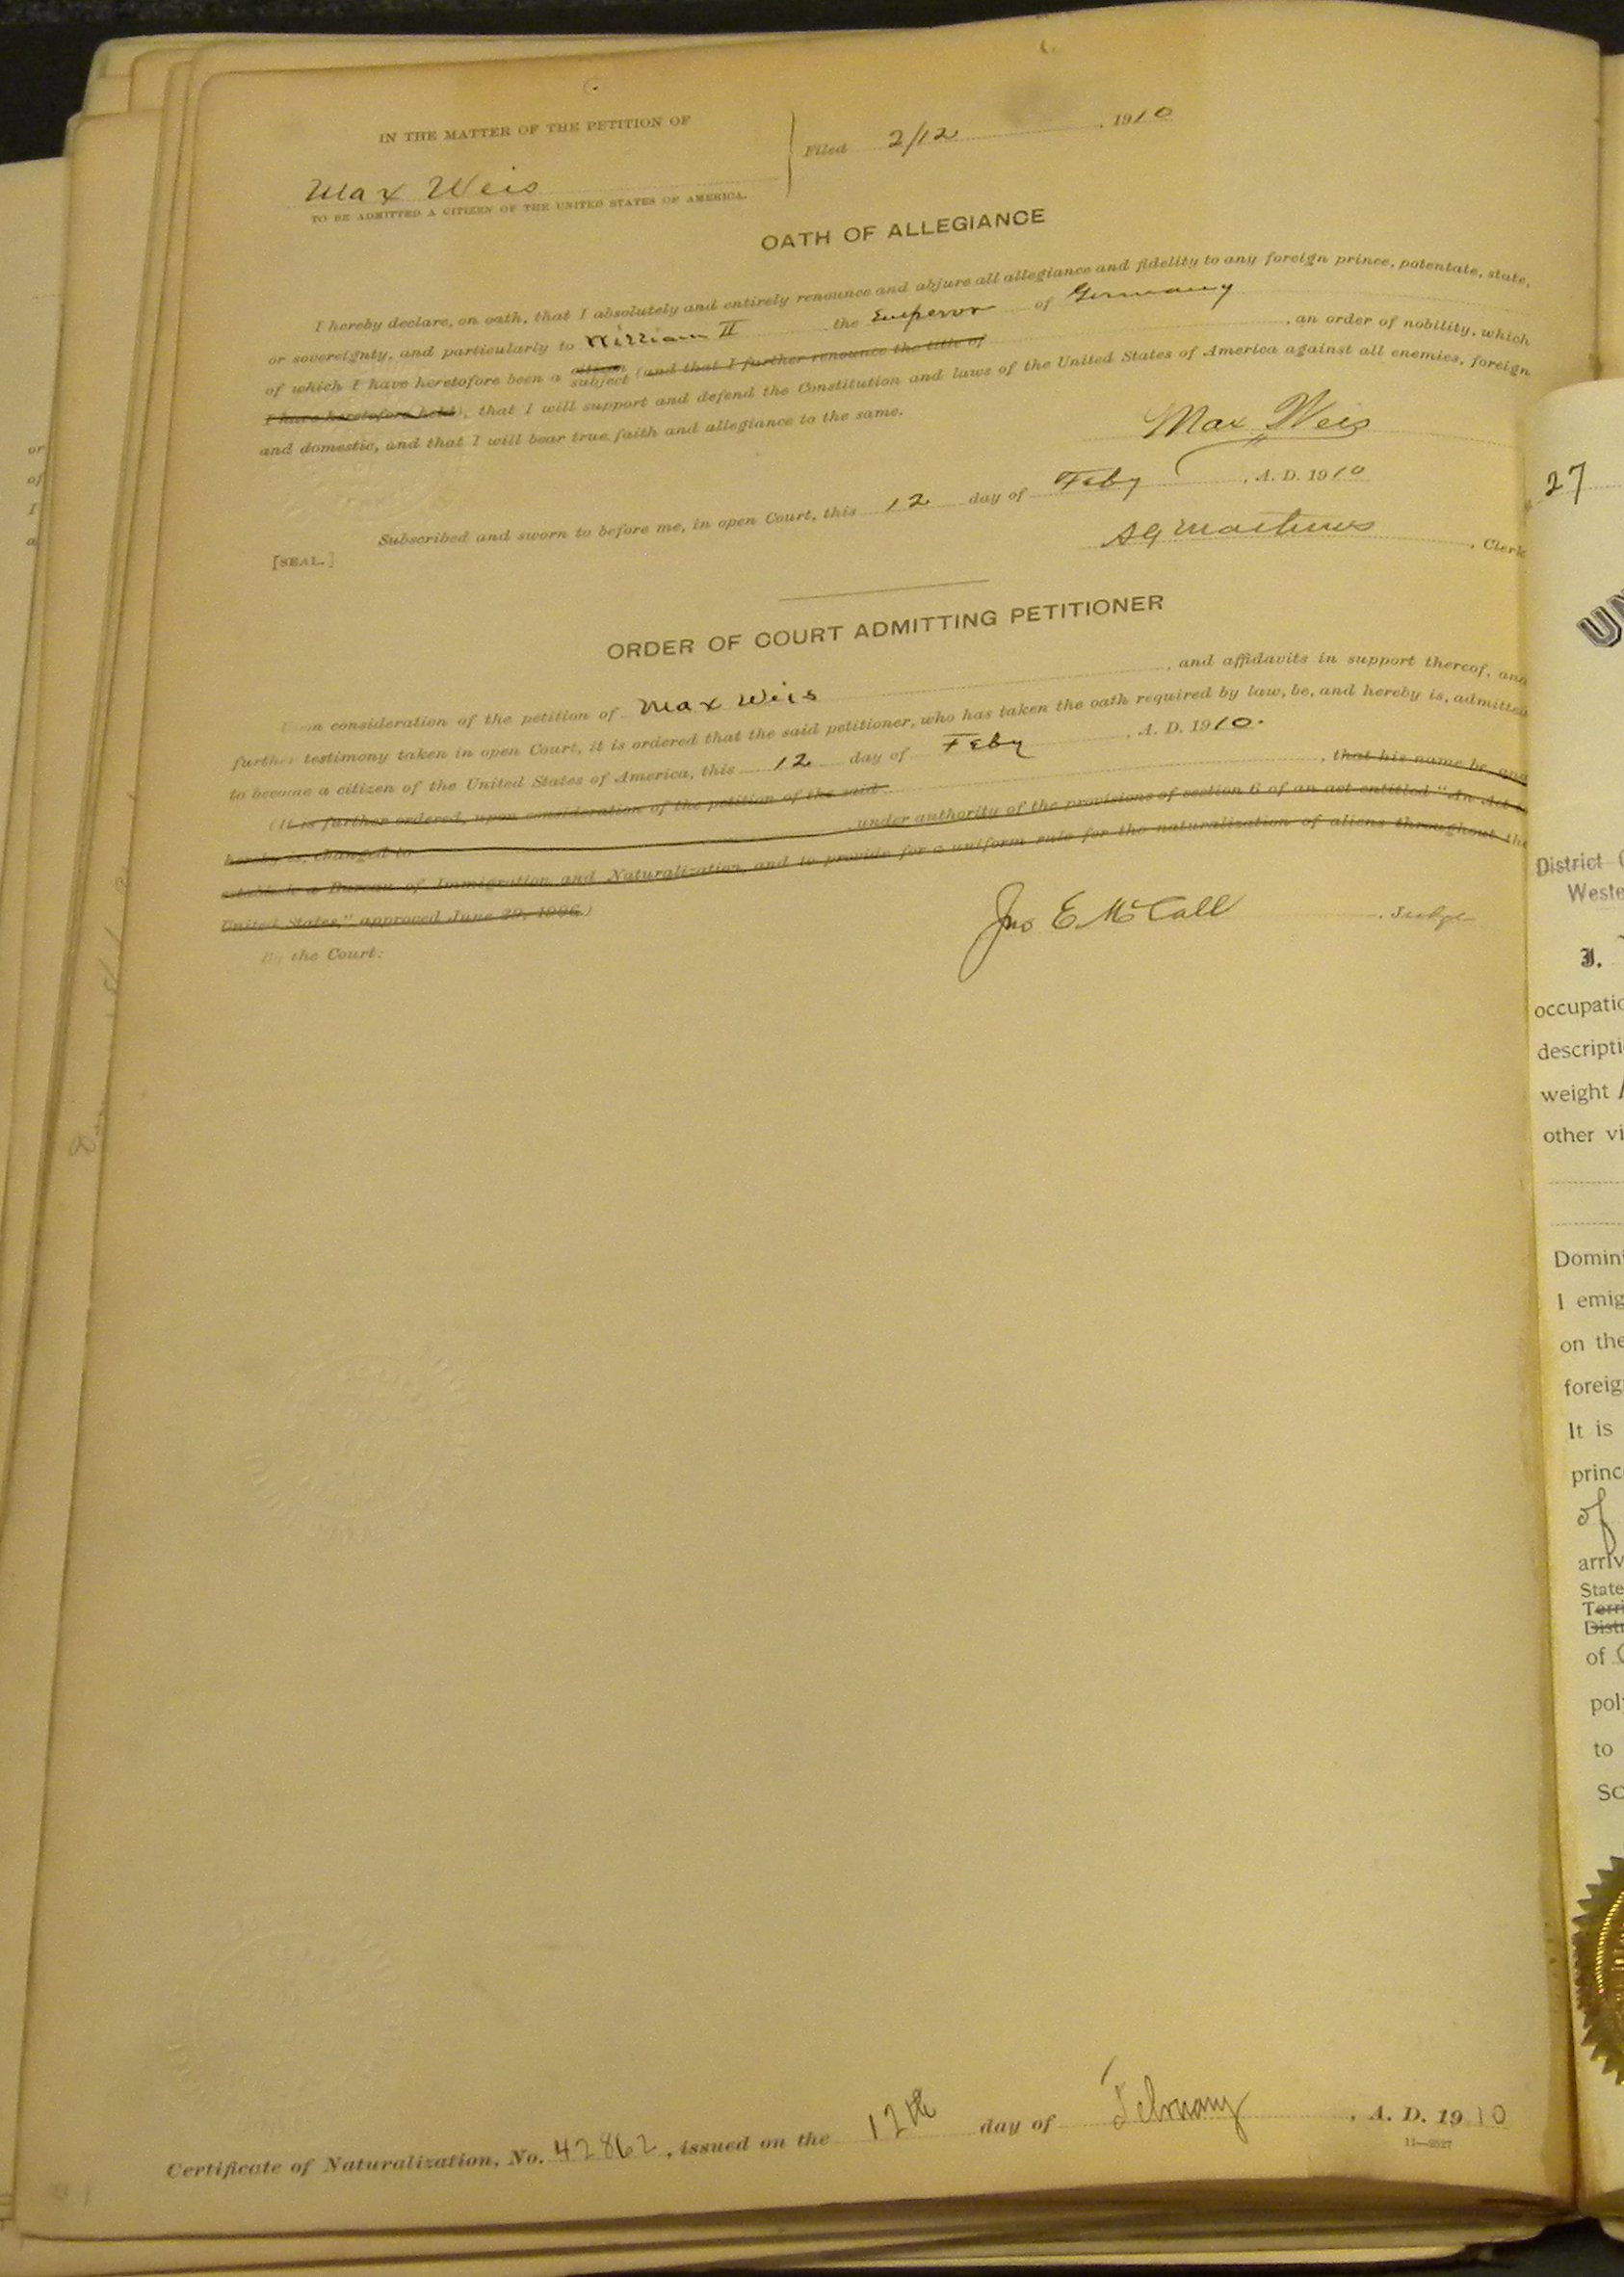 IN THE MATTER OF THE PETITION OF
Max Weis
TO BE ADMITTED A CITIZEN OF THE UNITED STATES OF AMERICA.
Filed 2/12, 1910
OATH OF ALLEGIANCE
I hereby declare, on oath, that I absolutely and entirely renounce and abjure all allegiance and fidelity to any foreign prince, potentate, state,
or sovereignty, and particularly to William II the Emperor of Germany
of which I have heretofore been a citizen subject (and that I further renounce the title of , an order of nobility, which
I have heretofore held), that I will support and defend the Constitution and laws of the United States of America against all enemies, foreign
and domestic, and that I will bear true faith and allegiance to the same.
Max Weis
Subscribed and sworn to before me, in open Court, this 12 day of Feby, A. D. 1910
[SEAL.]
, Clerk
ORDER OF COURT ADMITTING PETITIONER
Upon consideration of the petition of Max Weis, and affidavits in support thereof, and
further testimony taken in open Court, it is ordered that the said petitioner, who has taken the oath required by law, be, and hereby is, admitted
to become a citizen of the United States of America, this 12 day of Feby, A. D. 1910.
(It is further ordered, upon consideration of the petition of the said , that his name be, and
hereby is, changed to , under authority of the provisions of section 6 of an act entitled "An Act to
establish a Bureau of Immigration and Naturalization, and to provide for a uniform rule for the naturalization of aliens throughout the
United States," approved June 29, 1906.)
By the Court:
Jno E. McCall, Judge
Certificate of Naturalization, No. 42862, issued on the 12th day of February, A. D. 1910
11—2527
or
of
I
a
27
UN
District
Weste
occupatio
descripti
weight
other vi
Domin
I emig
on the
foreig
It is
princ
of
arriv
State
Terri
Distr
of
pol
to
So